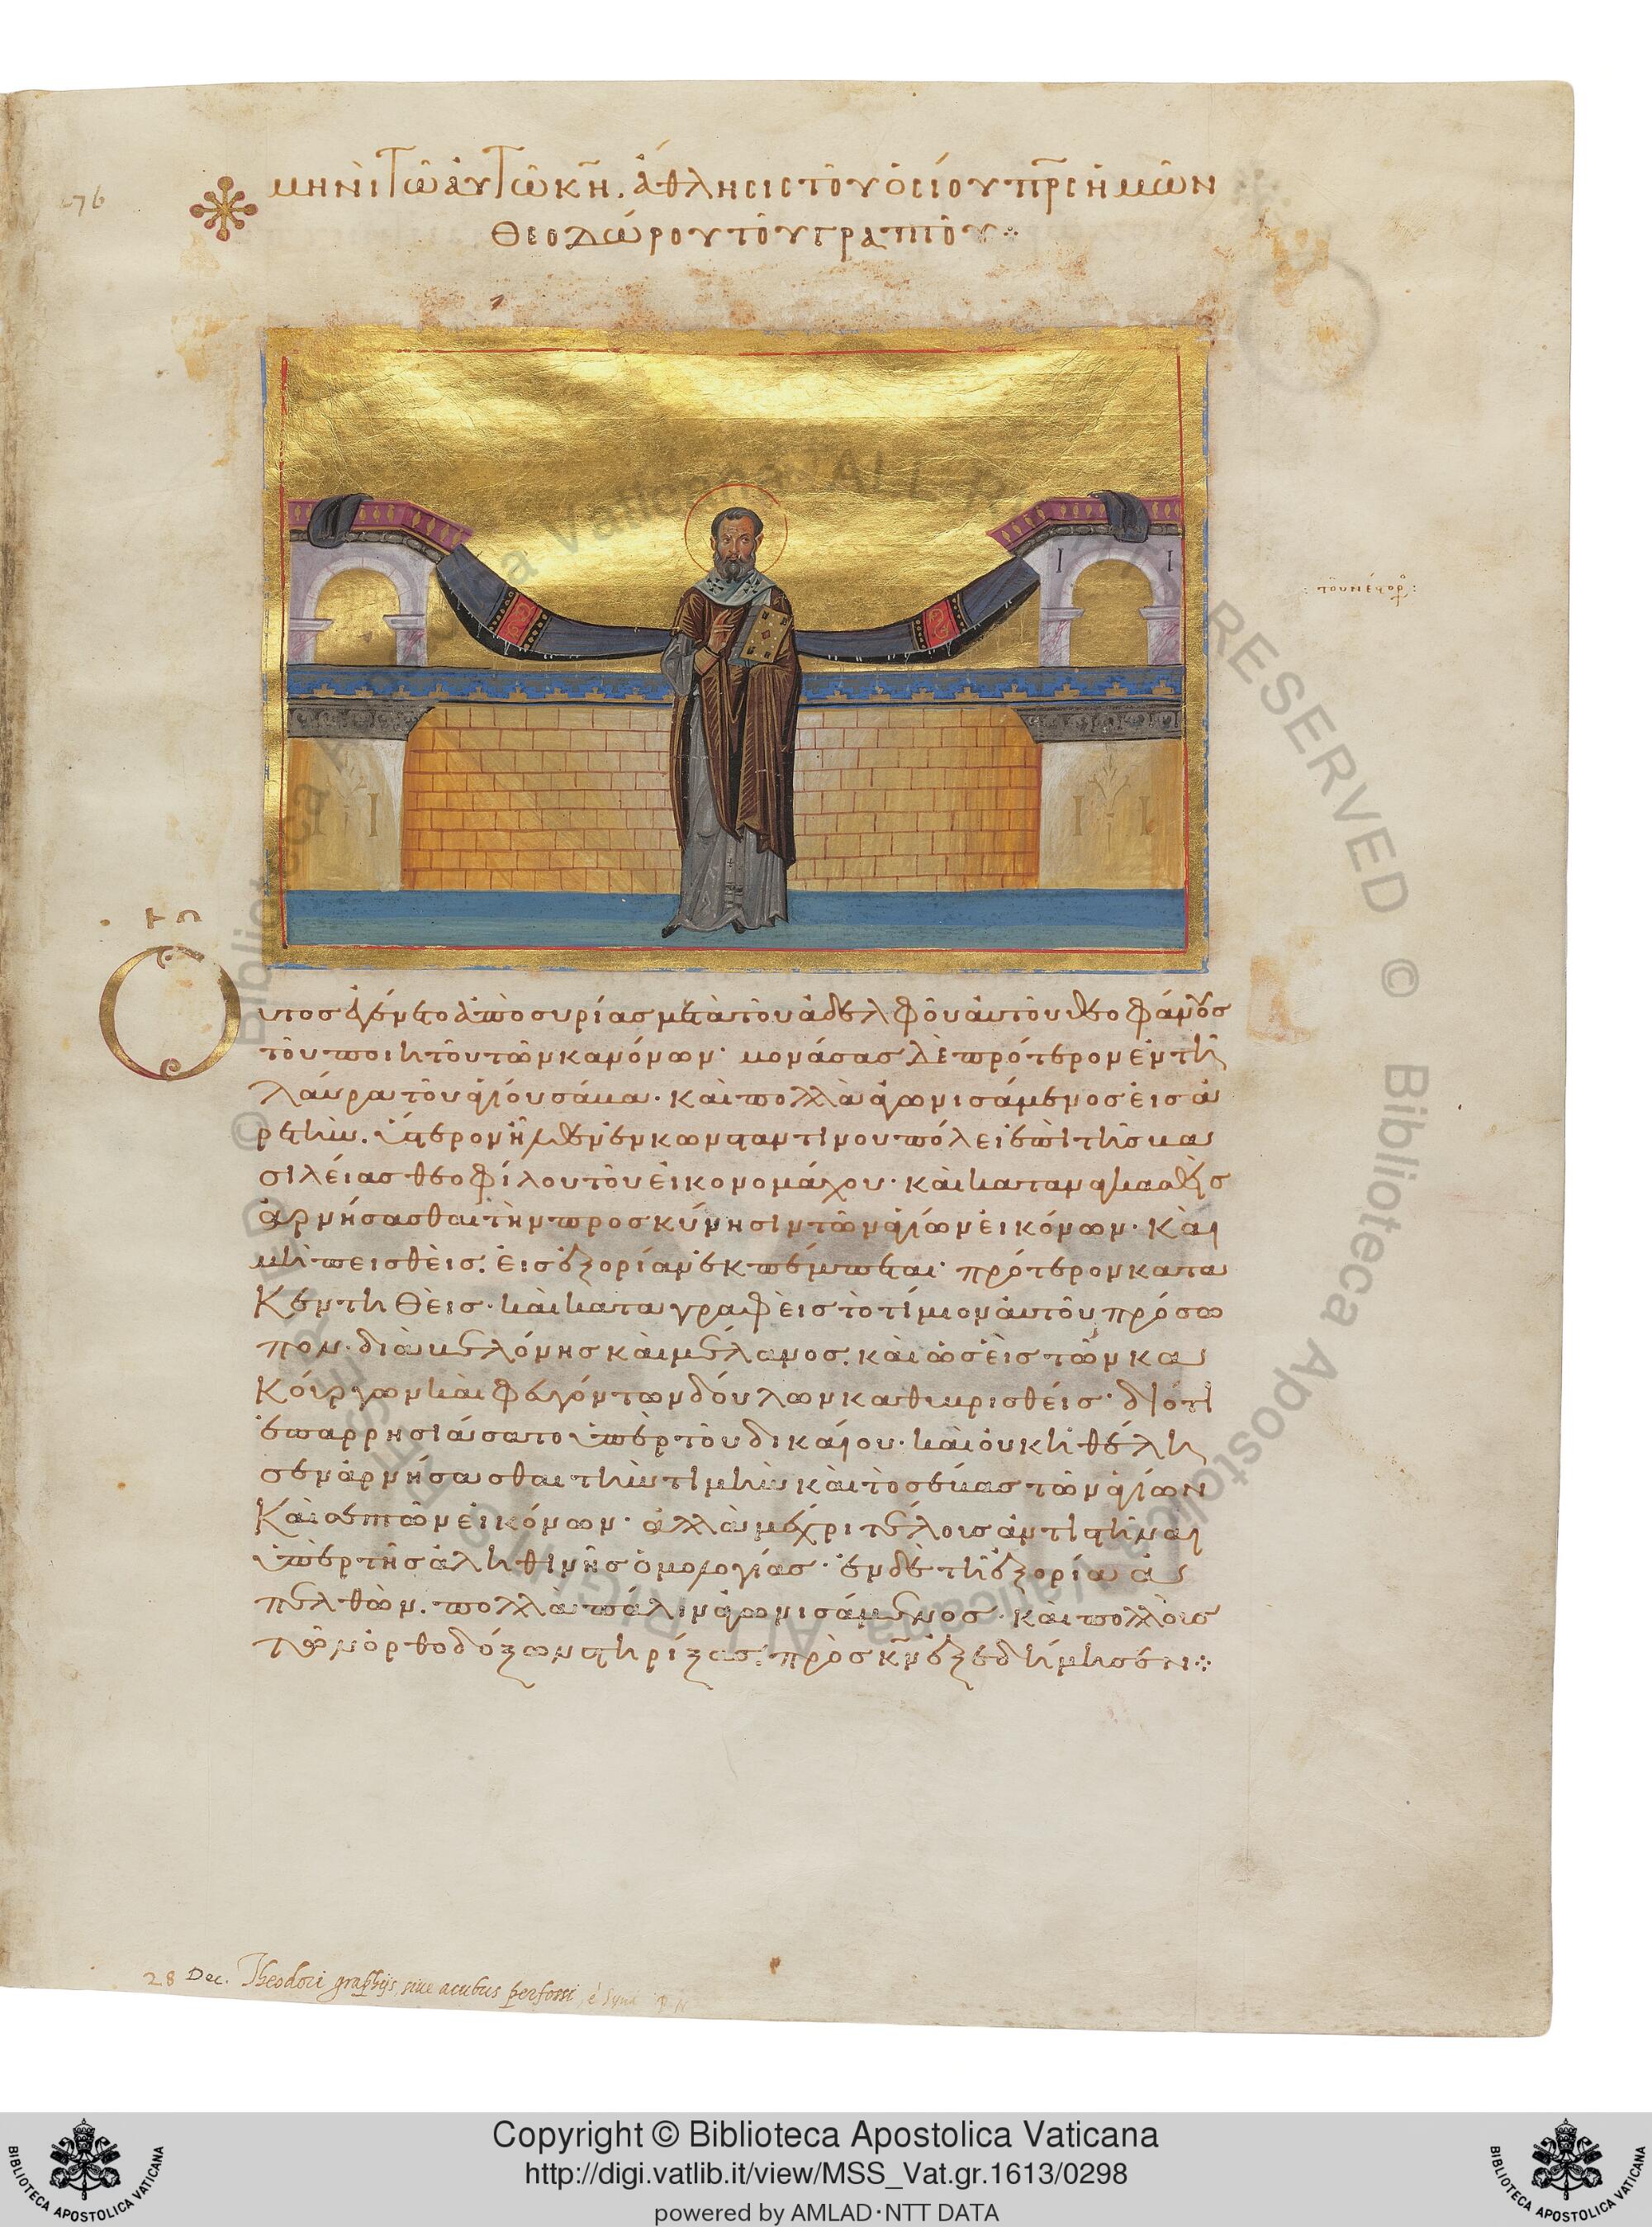 276
μηνὶ τῶ αὐτῶ κη̅. ἄθλησις τοῦ ὁσίου πρ̅ς ἡμῶν
Θεοδώρου τοῦ γραπτοῦ
τοῦ νέου
Οὗτος ἐγένετο ἀπὸ συρίας μετὰ τοῦ ἀδελφοῦ αὐτοῦ θεοφάνους
τοῦ ποιητοῦ τῶν κανόνων· μονάσας δὲ πρότερον ἐν τῆ
λαύρα τοῦ ἁγίου σάβα· καὶ πολλὰ ἀγωνισάμενος εἰς ἀ
ρετὴν. ὕστερον ἦλθεν ἐν κωνσταντίνου πόλει ἐπὶ τῆς βα
σιλείας θεοφίλου τοῦ εἰκονομάχου· καὶ καταναγκασθεὶς
ἀρνήσασθαι τὴν προσκύνησιν τῶν ἁγίων εἰκόνων· Καὶ
μὴ πεισθεὶς. εἰς ἐξορίαν ἐκπέμπεται· πρότερον κατα
Κεντηθεὶς· καὶ καταγραφεὶς τὸ τίμιον αὐτοῦ πρόσω
πον· διὰ βελόνης καὶ μέλανος. καὶ ὡς εἷς τῶν κα
Κούργων καὶ φευγόντων δούλων καθυβρισθείς· διότι
ἐπαρρησιάσατο ὑπὲρ τοῦ δικαίου· καὶ οὐκ ἠθέλη
σεν ἀρνήσασθαι τὴν τιμὴν καὶ τὸ σέβας τῶν ἁγίων
Καὶ σεπτῶν εἰκόνων· ἀλλὰ μέχρι τέλους ἀντιστῆναι
ὑπὲρ τῆς ἀληθινῆς ὁμολογίας· ἐν δὲ τῆ ἐξορία ἀ
πελθὼν. πολλὰ πάλιν ἀγωνισάμενος· καὶ πολλοὺς
τῶν ὀρθοδόξων στηρίξας· πρὸς κ̅ν ἐξεδήμησεν
28 Dec. Theodori graphijs, siue acubus perfossi
© Biblioteca Apostolica Vaticana ALL RIGHTS RESERVED
Copyright © Biblioteca Apostolica Vaticana
http://digi.vatlib.it/view/MSS_Vat.gr.1613/0298
powered by AMLAD·NTT DATA
BIBLIOTECA APOSTOLICA VATICANA
BIBLIOTECA APOSTOLICA VATICANA